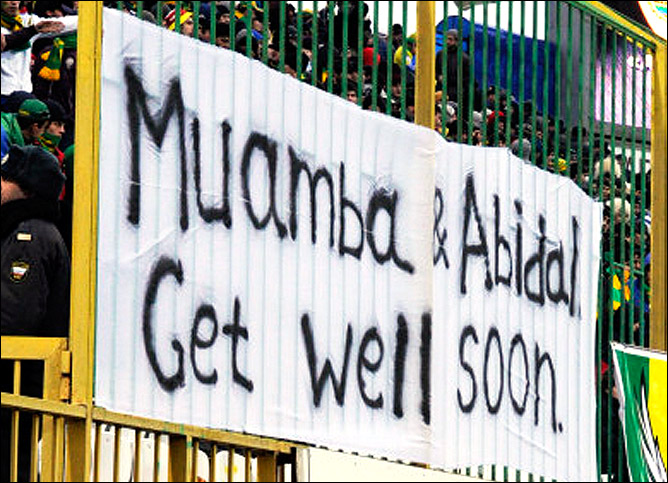 Muamba & Abidal.
Get well soon.